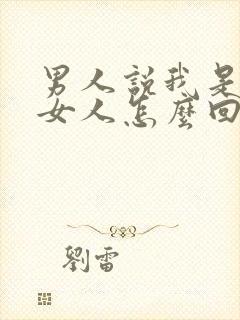 男人説我是
女人怎麼回
劉雷